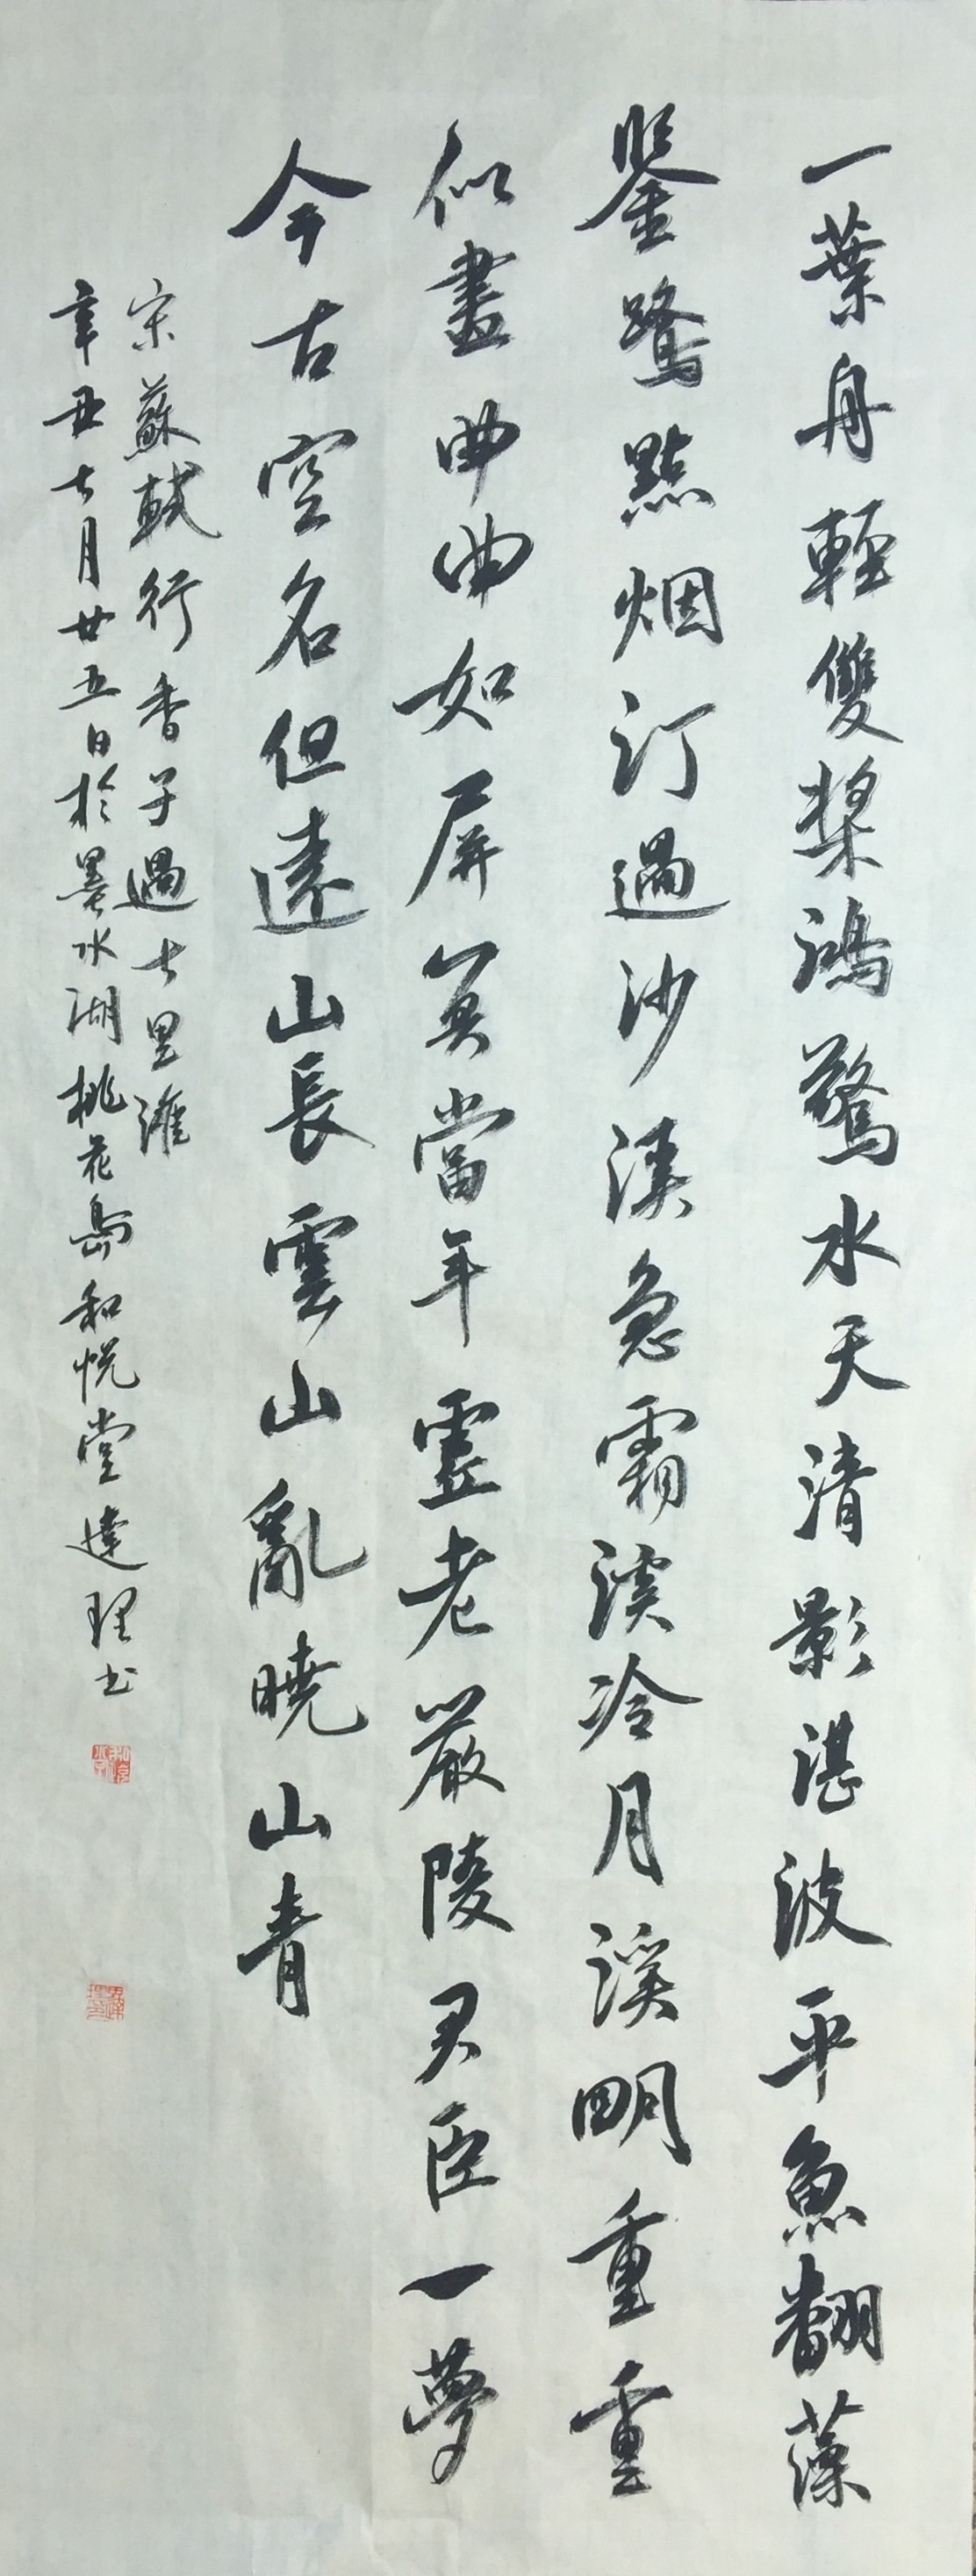 一葉舟輕雙槳鴻驚水天清影湛波平魚翻藻
鑒鷺點烟汀過沙溪急霜溪冷月溪明重重
似畫曲曲如屏算當年虛老嚴陵君臣一夢
今古空名但遠山長雲山亂曉山青
宋蘇軾行香子過七里灘
辛丑七月廿五日於墨水湖桃花島和悅堂達理书